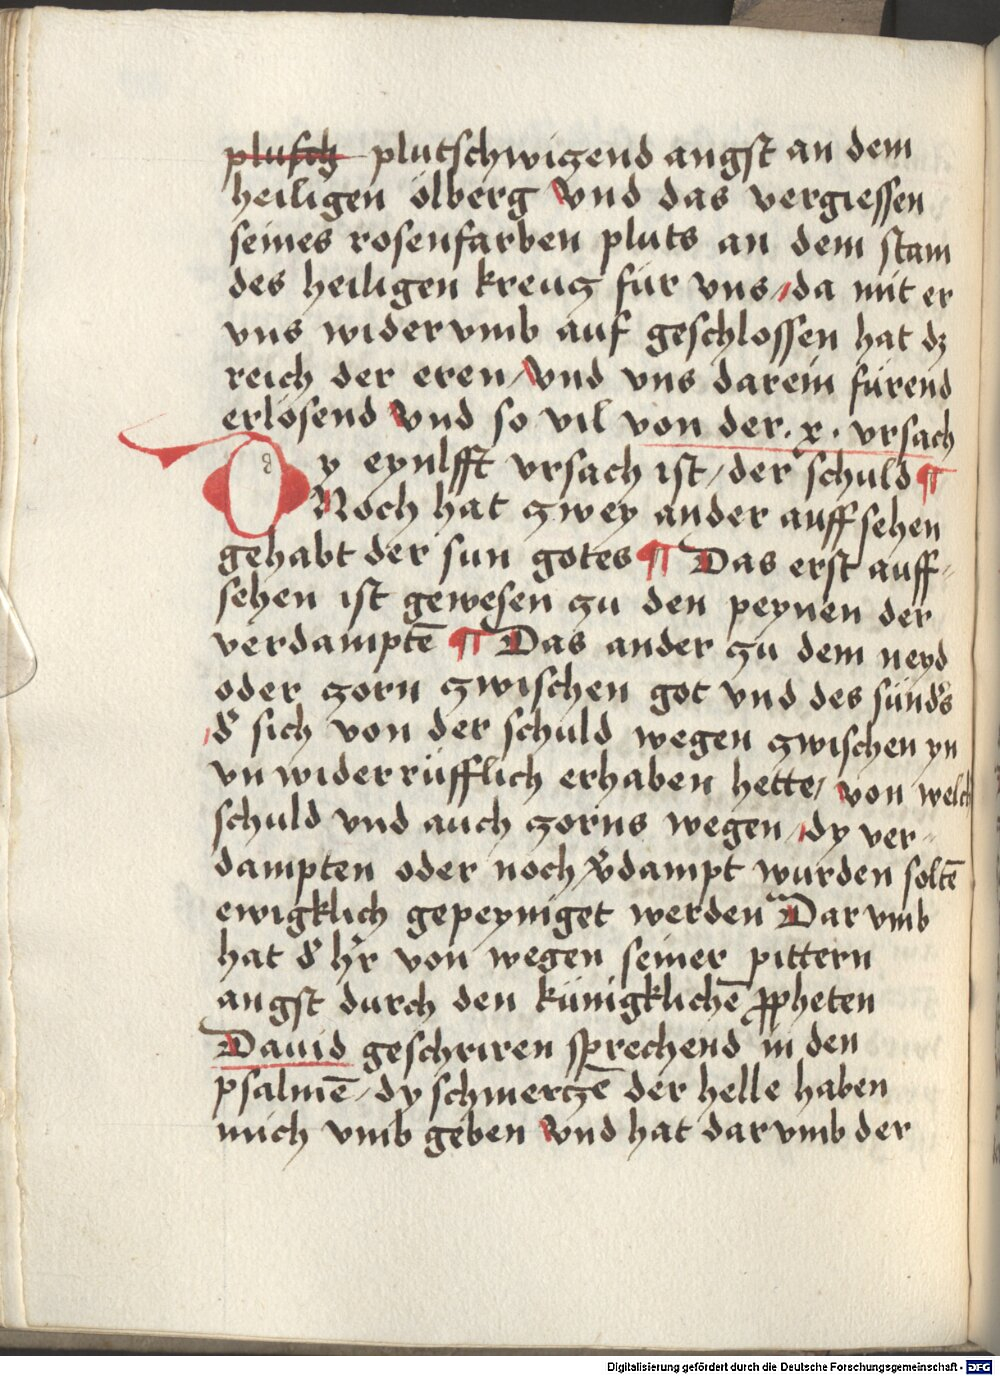 plusch plutschwizend angst an dem
heiligen ölberg Vnd das vergiessen
seines rosenfarben pluts an dem stam
des heiligen kreuz für vns / da mit er
vns widervmb auf geschlossen hat dz
reich der eren / Vnd vns darein fürend
erlösend Vnd so vil von der . x . vrsach
Dy eynlfft vrsach ist / der schuld ¶
Noch hat zwey ander auffsehen
gehabt der sun gotes ¶ Das erst auff-
sehen ist gewesen zu den peynen der
verdamptē ¶ Das ander zu dem neyd
oder zorn zwischen got vnd des sünd's
/ d' sich von der schuld wegen zwischen yn
vn widerrüfflich erhaben hette / von welch
schuld vnd auch zorns wegen / dy ver-
dampten oder noch v'dampt wurden soltē
ewigklich gepeyniget werden Darvmb
hat d' h'r von wegen seiner pittern
angst durch den künigklichē ꝓpheten
Dauid geschriren sprechend in den
psalmē / dy schmerczē der helle haben
mich vmb geben Vnd hat darvmb der
Digitalisierung gefördert durch die Deutsche Forschungsgemeinschaft - DFG